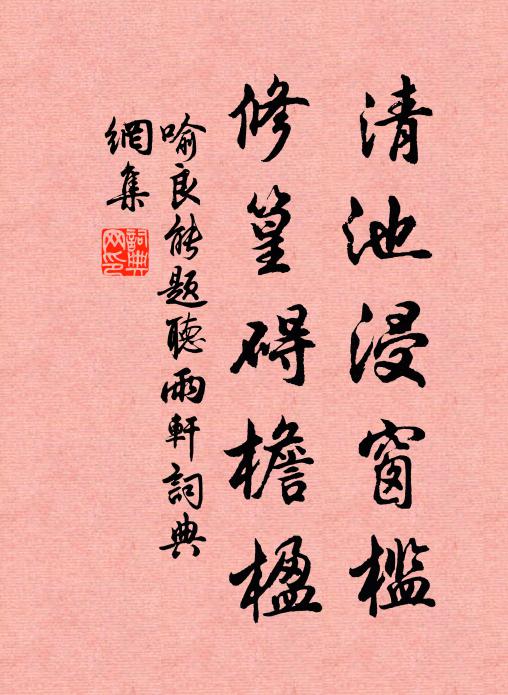 清池浸窗檻
修篁碍檐楹
喻良能題聽雨軒詞典
網集
詞典
网印